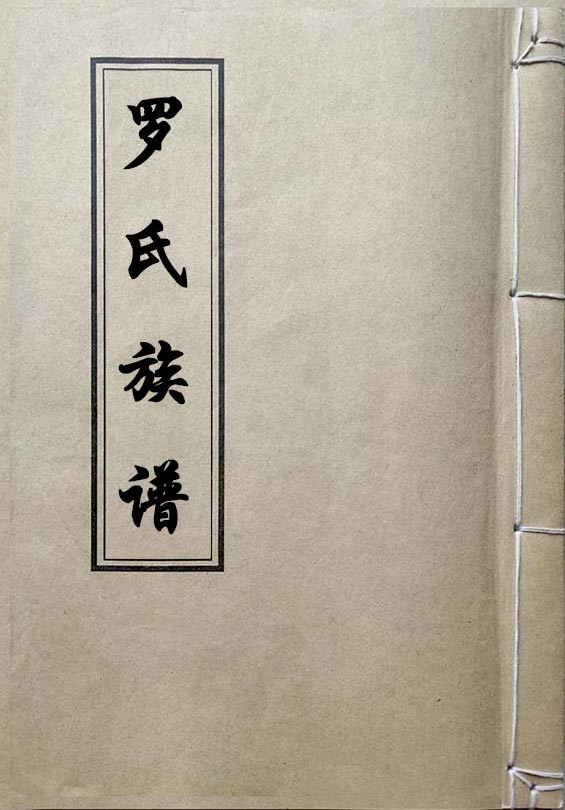 罗氏族谱